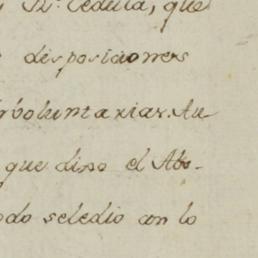 Rl. Cedula, que
disposiciones
voluntarias. Au-
que dixo el Abo-
odo seledio con lo